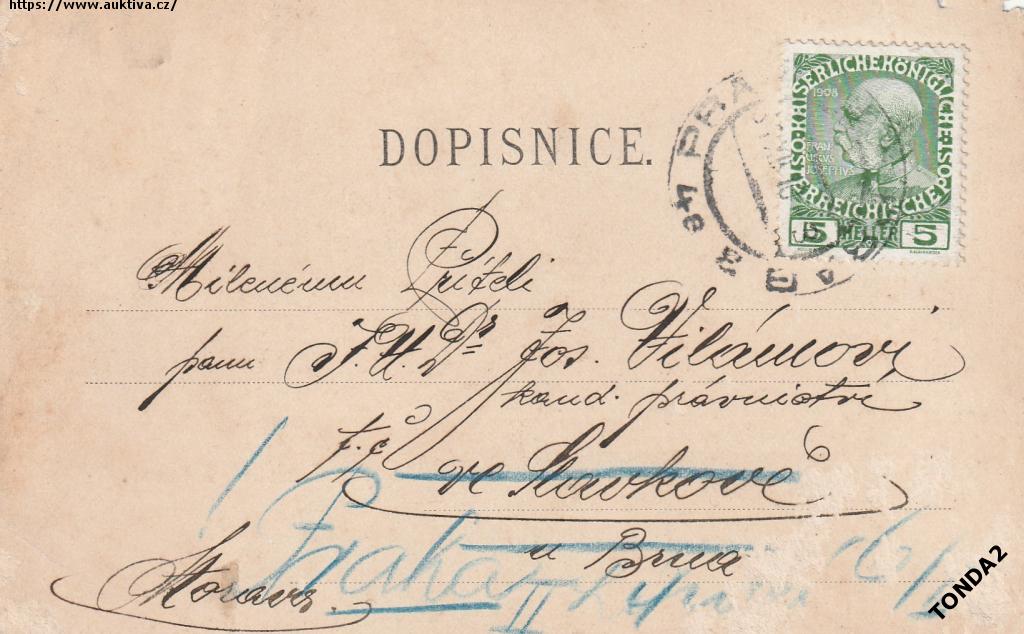 https://www.auktiva.cz/
1908
KAISERLICHE KÖNIGLICHE OSTERREICHISCHE POST
FRAN
CISCVS
JOSEPHVS
5 HELLER 5
DOPISNICE.
Milenému Příteli
panu J.U.Dr Jos. Vilámovi
kand. právnictví
t.č.
ve Slavkově
u Brna
Morava.
Praha
II
TONDA2